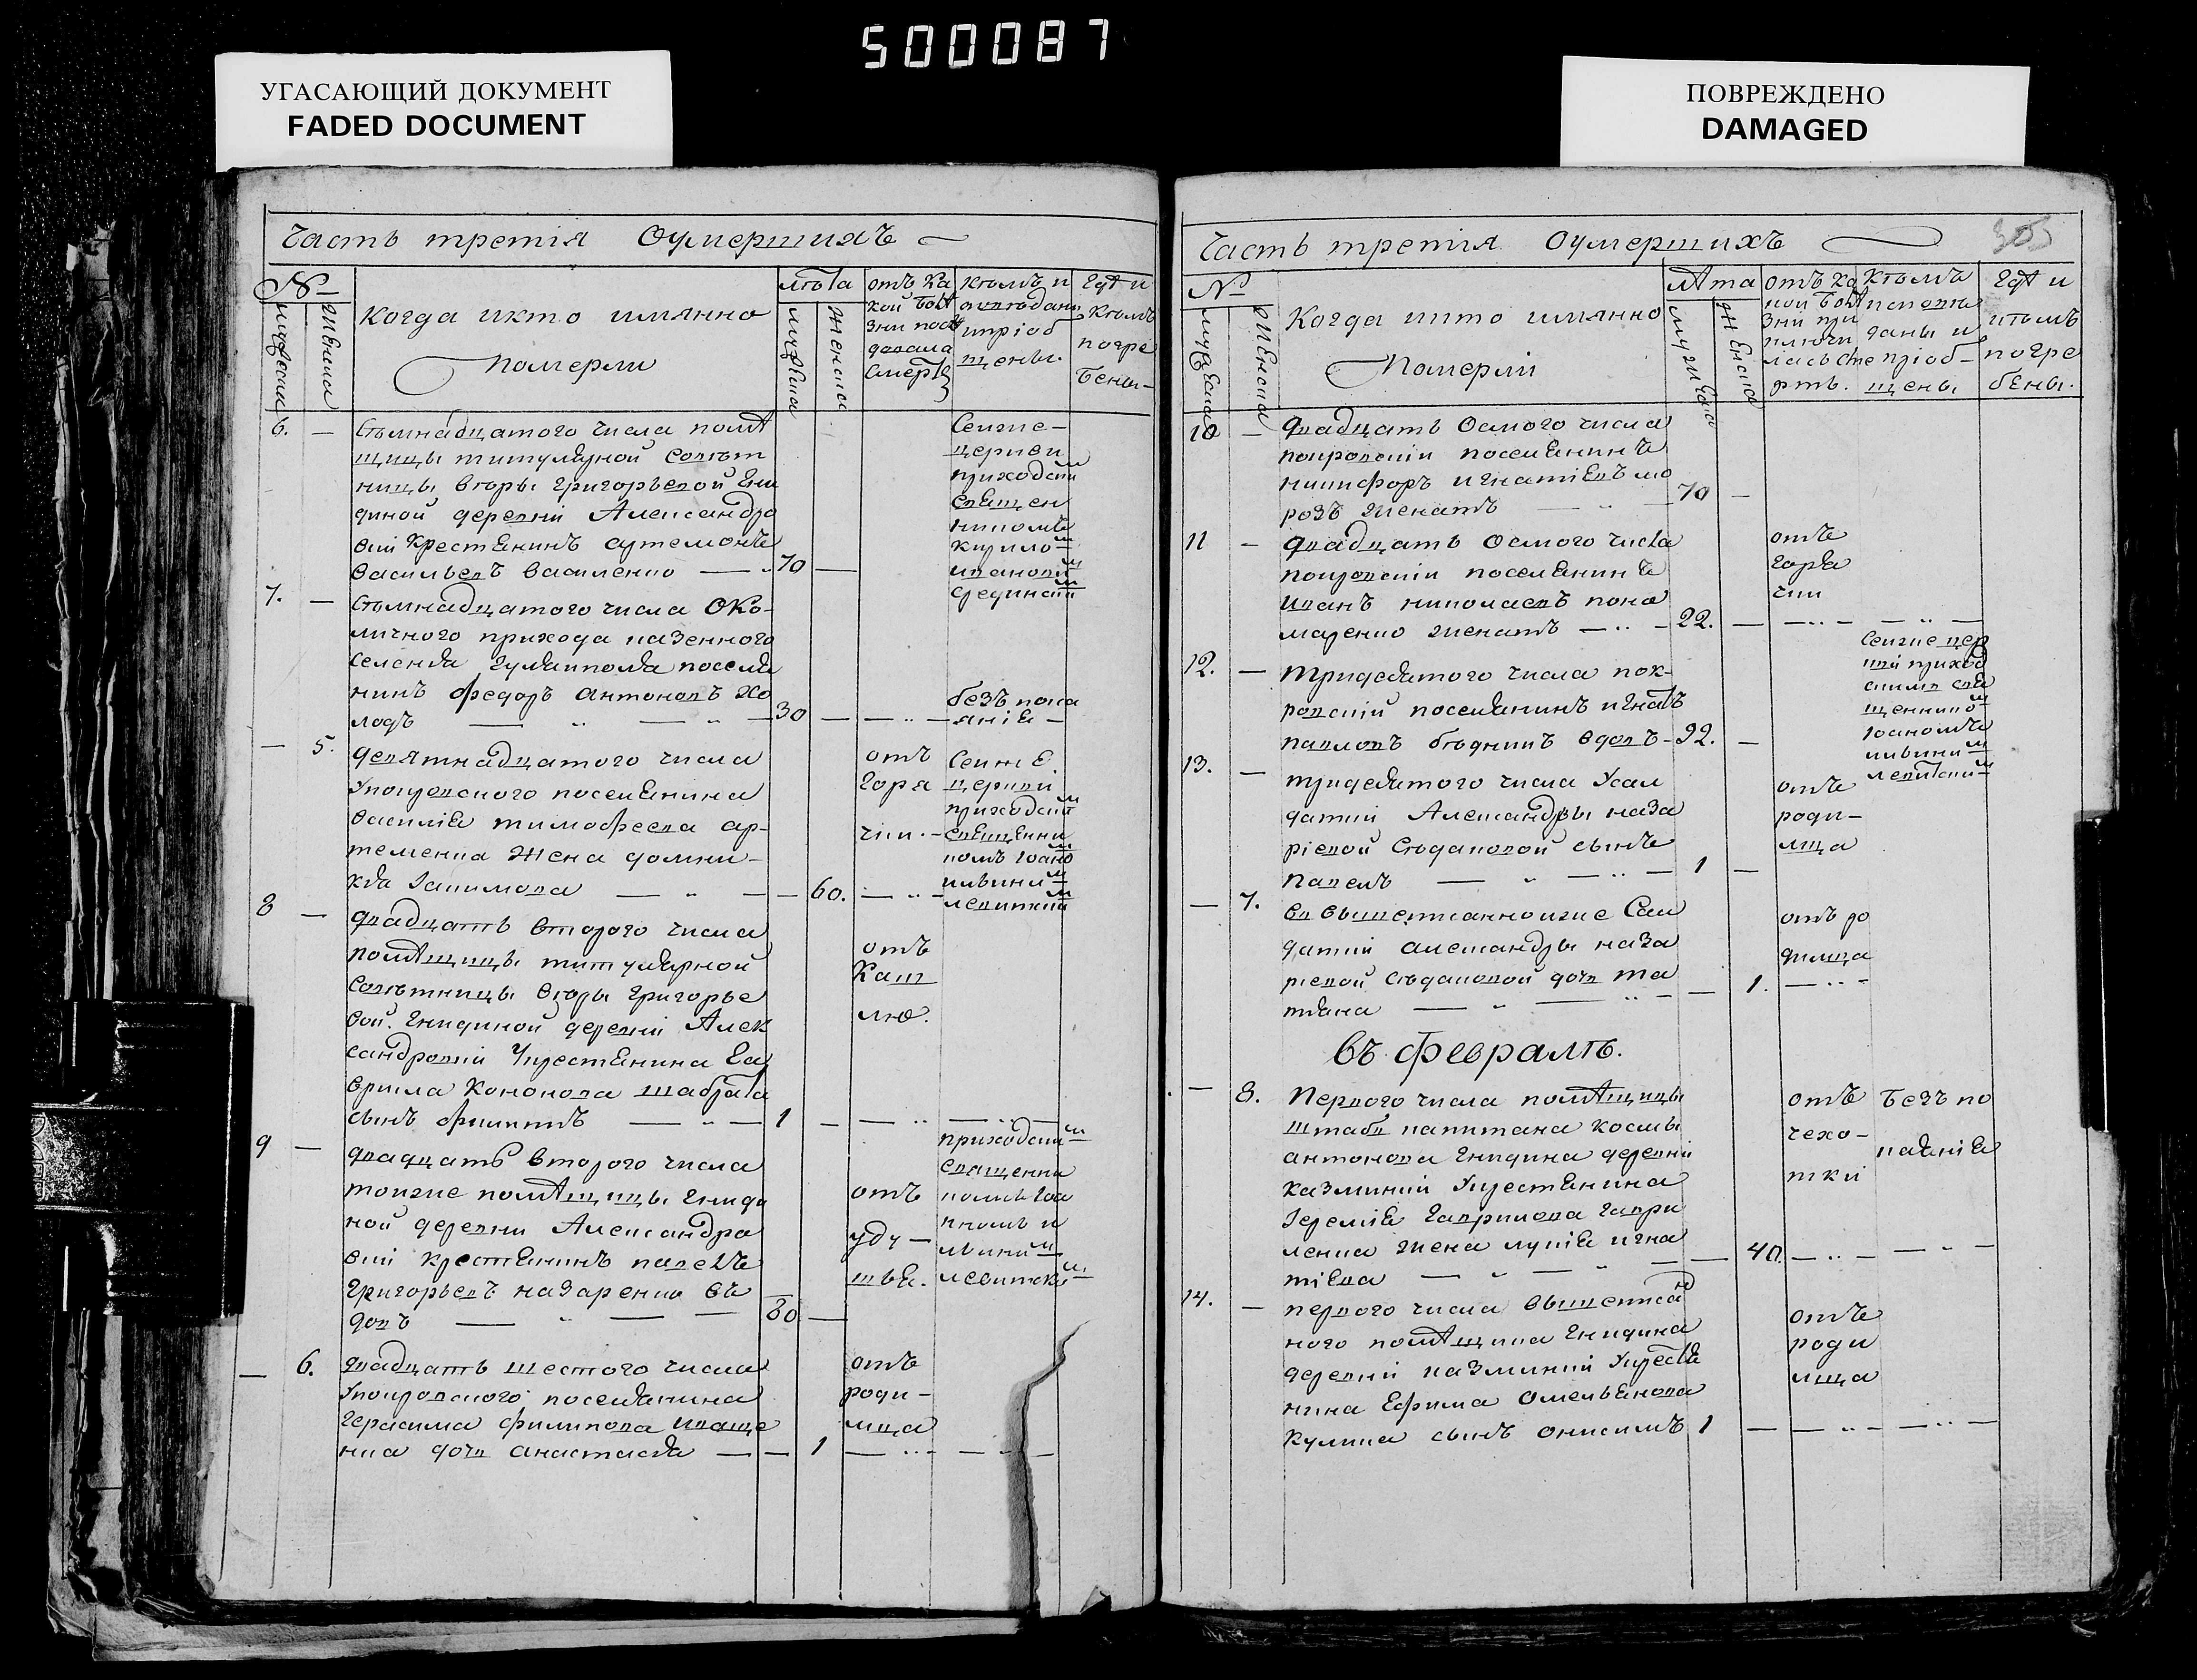 500087
УГАСАЮЩИЙ ДОКУМЕНТ
FADED DOCUMENT
ПОВРЕЖДЕНО
DAMAGED
Часть третія Оумершихъ
№
мужеска
женска
Когда икто имянно
померли
лѣта
мужеска
женска
отъ ка
кой болѣ
зни посл
довала
смерть
кѣмъ и
исповѣданы
ипріоб
щены.
Гдѣ и
кѣмъ
погре
бены
6. —
Сѣмнадцатого числа помѣ
щицы титулярной совѣт
ницы вѣры григорьевой гни
диной деревни Александро
вки крестянинъ артемонъ
васильевъ василенко — 70 —
Сеиже
церкви
приходскимъ
священ
никомъ
кирило
ивановимъ
7. —
Сѣмнадцатого числа Око
личного прихода казенного
селенія гуляйполя поселя
нинъ федоръ антоновъ хо
лодъ — 30 —
безъ пока
янія —
— 5.
девятнадцатого числа
Упокровского поселянина
василія тимофеева ар-
теменка жена домни-
кія Іакимова — 60.
отъ
горя
чки.
Сеиже
церкви
приходскимъ
священни
комъ Іоано
львиним
левитским
8 —
двадцать второго числа
помѣщицы титулярной
совѣтницы вѣры григорье
вой гнидиной деревни Алек
сандровки Укрестянина Га
врила Кононова шабрата
сынъ филипъ — 1 —
отъ
каш
лю.
9 —
двадцать второго числа
тоижие помѣщицы гниди
ной деревни Александро
вки крестянинъ павелъ
григорьевъ назаренко в
довъ — 80 —
отъ
уду-
шья.
приходским
священни
комъ Іоа
ном
львиним
левитским
— 6.
двадцать шестого числа
Упокровского поселянина
герасима филипова иваще
нка дочь анастасія — 1
отъ
роди-
мца
Часть третія Оумершихъ
305
№
мужеска
женска
Когда икто имянно
Померли
лѣта
мужеска
женска
отъ ка
кой болѣ
зни при
ключи
лась сме
рть.
Кѣмъ
исповѣ
даны и
пріоб-
щены
Гдѣ и
икѣмъ
погре
бены.
10 —
двадцать Осмого числа
покровскій поселянинъ
никифоръ игнатіевъ мо
розъ женатъ — 70 —
11 —
двадцать Осмого числа
покровскій поселянинъ
иванъ николаевъ поно
маренко женатъ — 22. —
отъ
горя
чки
12. —
тридсятого числа пок-
ровскій поселянинъ игнатъ
павловъ бѣдникъ вдовъ — 92. —
Сеиже цер
кви приход
скимъ свя
щеннико
Іоаномъ
львиним
левитским
13. —
тридсятого числа Усол
датки Александры наза
ріевой Сѣдаковой сынъ
павелъ — 1 —
отъ
роди-
мца
— 7.
вишеписанноиже Сол
датки александры наза
ріевой Сѣдаковой дочь та
тяна — 1.
отъ ро
димца
въ феврале.
— 8.
Первого числа помѣщицы
штабъ капитана космы
антонова гнидина деревни
казминки Укрестянина
Іеремія гаврилова гаври
ленка жена лукія игна
тіева — 40.
отъ
чехо-
тки
безъ по
каянія
14. —
первого числа вышеписан
ного помѣщика гнидина
деревни казминки Укрестя
нина Ефима Омельянова
кулика сынъ онисимъ 1 —
отъ
роди
мца